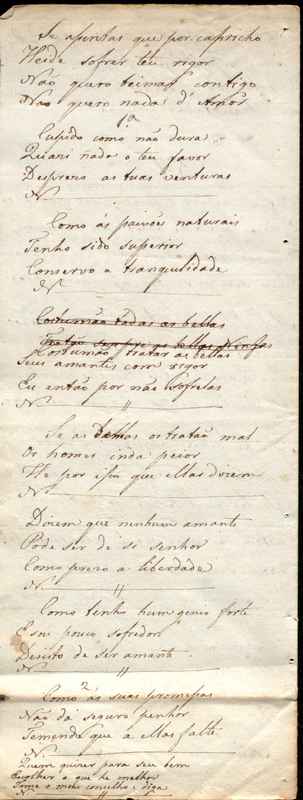 Se assentas que por capricho
Heide sofrer teu rigor
Não quero teimar contigo
Não quero nada d'Amor
1a
Cupido como não dura
Quazi nada o teu favor
Desprezo as tuas venturas
N
Como ás paixões naturais
Tenho sido superior
Conservo a tranquilidade
N
Costumão todas as bellas
Tratão sempre as bellas Ninfas
Costumão tratar as bellas
Seus amantes com rigor
Eu então por não sofrelas
N //
Se as damas os tratão mal
Os homes inda peior
He por isso que ellas dizem
N
Dizem que nenhum amante
Pode ser de si senhor
Como prezo a liberdade
N //
Como tenho hum genio forte
E sou pouco sofredor
Desisto de ser amante
N //
2
Como ás suas promessas
Não dá seguro penhor
Temendo que a ellas falte
N
Quem quizer para seu bem
Escolher o que he melhor
Tome o meu conselho, diga
N //